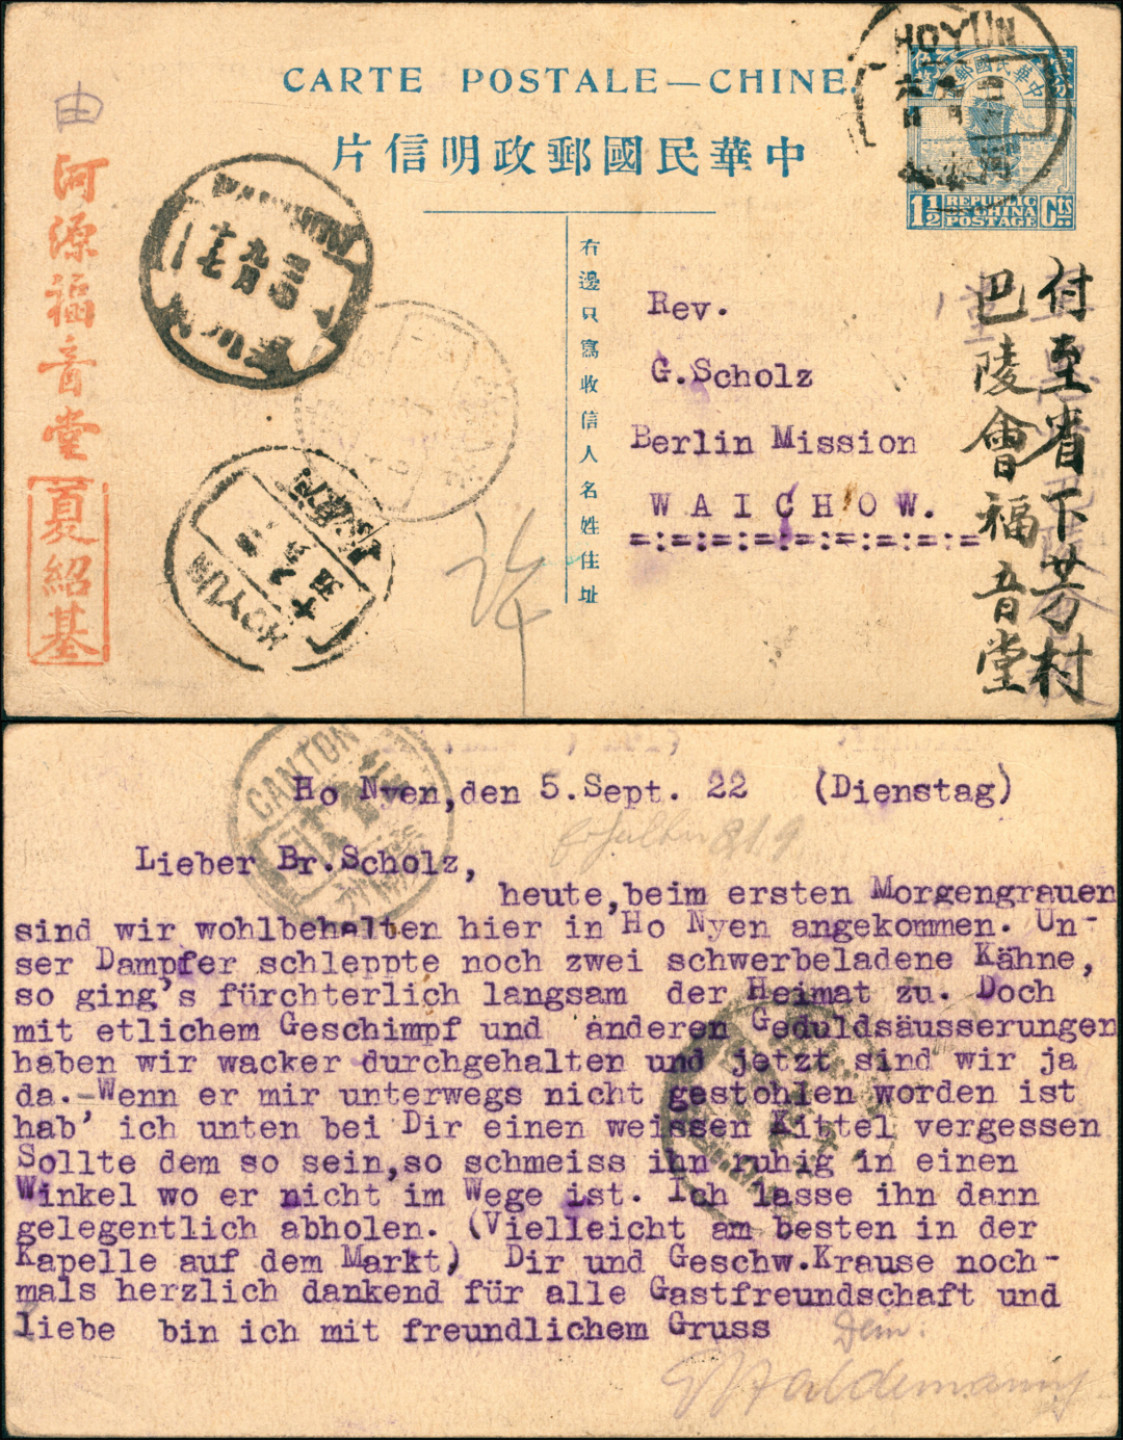 CARTE POSTALE—CHINE.
片信明政郵國民華中
HOYUN
1½ REPUBLIC OF CHINA POSTAGE Cts
由
河源福音堂
夏紹基
右邊只寫收信人名姓住址
Rev.
G.Scholz
Berlin Mission
WAICHOW.
=:=:=:=:=:=:=:=:=
付至省下芳村
巴陵會福音堂
HOYUN
許
CANTON
Ho Nyen,den 5.Sept. 22 (Dienstag)
Lieber Br.Scholz,
heute,beim ersten Morgengrauen
sind wir wohlbehalten hier in Ho Nyen angekommen. Un-
ser Dampfer schleppte noch zwei schwerbeladene Kähne,
so ging's fürchterlich langsam der Heimat zu. Doch
mit etlichem Geschimpf und anderen Geduldsäusserungen
haben wir wacker durchgehalten und jetzt sind wir ja
da.-Wenn er mir unterwegs nicht gestohlen worden ist
hab' ich unten bei Dir einen weissen Kittel vergessen
Sollte dem so sein,so schmeiss ihn ruhig in einen
Winkel wo er nicht im Wege ist. Ich lasse ihn dann
gelegentlich abholen. (Vielleicht am besten in der
Kapelle auf dem Markt) Dir und Geschw.Krause noch-
mals herzlich dankend für alle Gastfreundschaft und
liebe bin ich mit freundlichem Gruss
Dein: